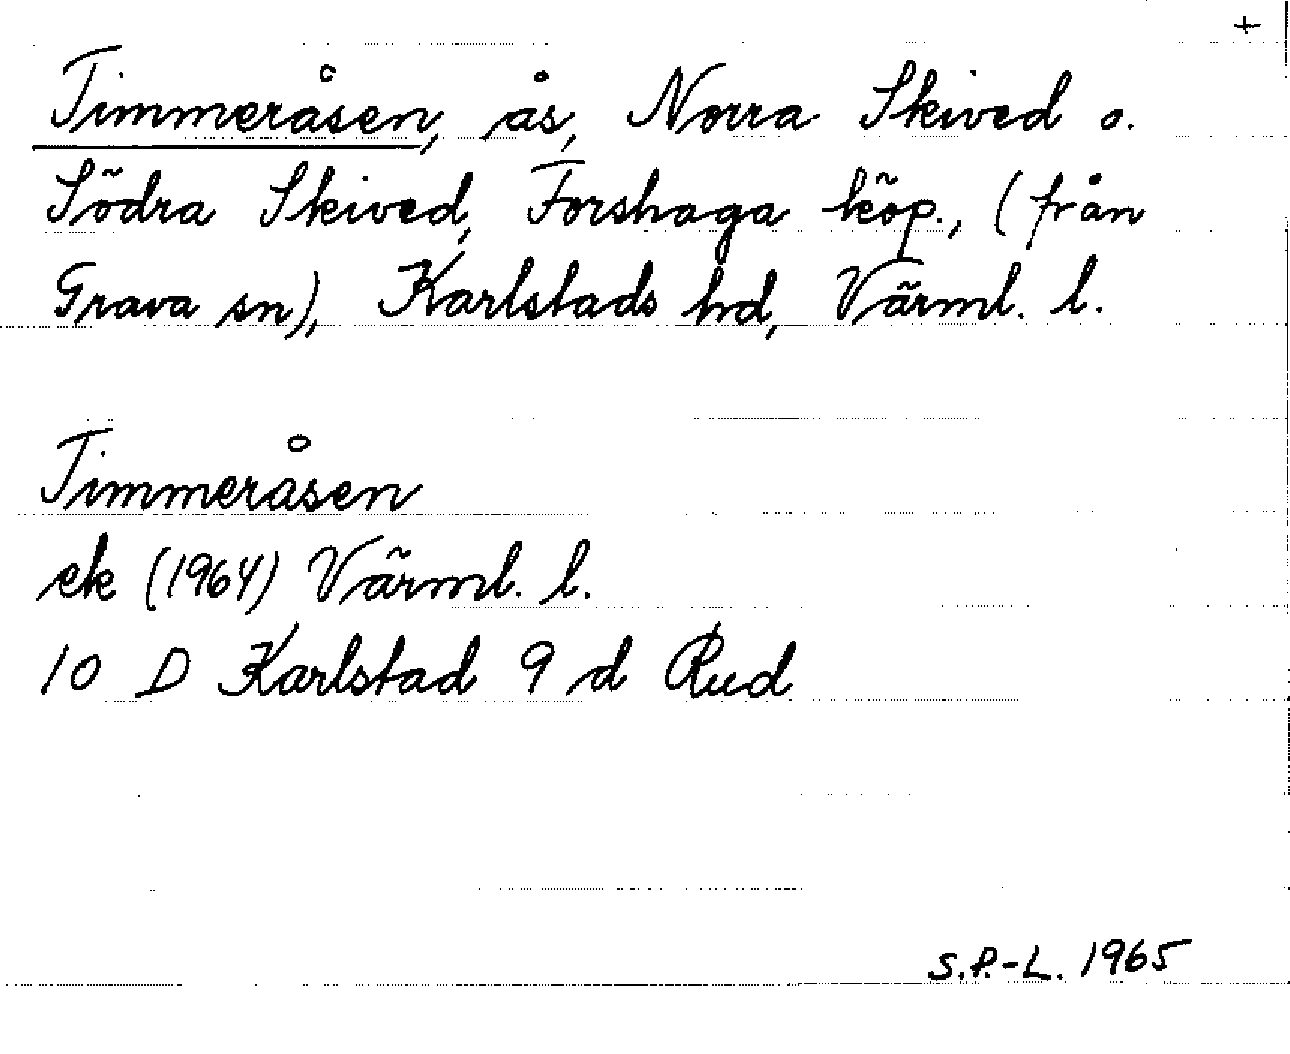 +
Timmeråsen, ås, Norra Skived o.
Södra Skived, Forshaga köp., (från
Grava sn), Karlstads hd, Värml. l.
Timmeråsen
ek (1964) Värml. l.
10 D Karlstad 9 d Rud
S.P.-L. 1965